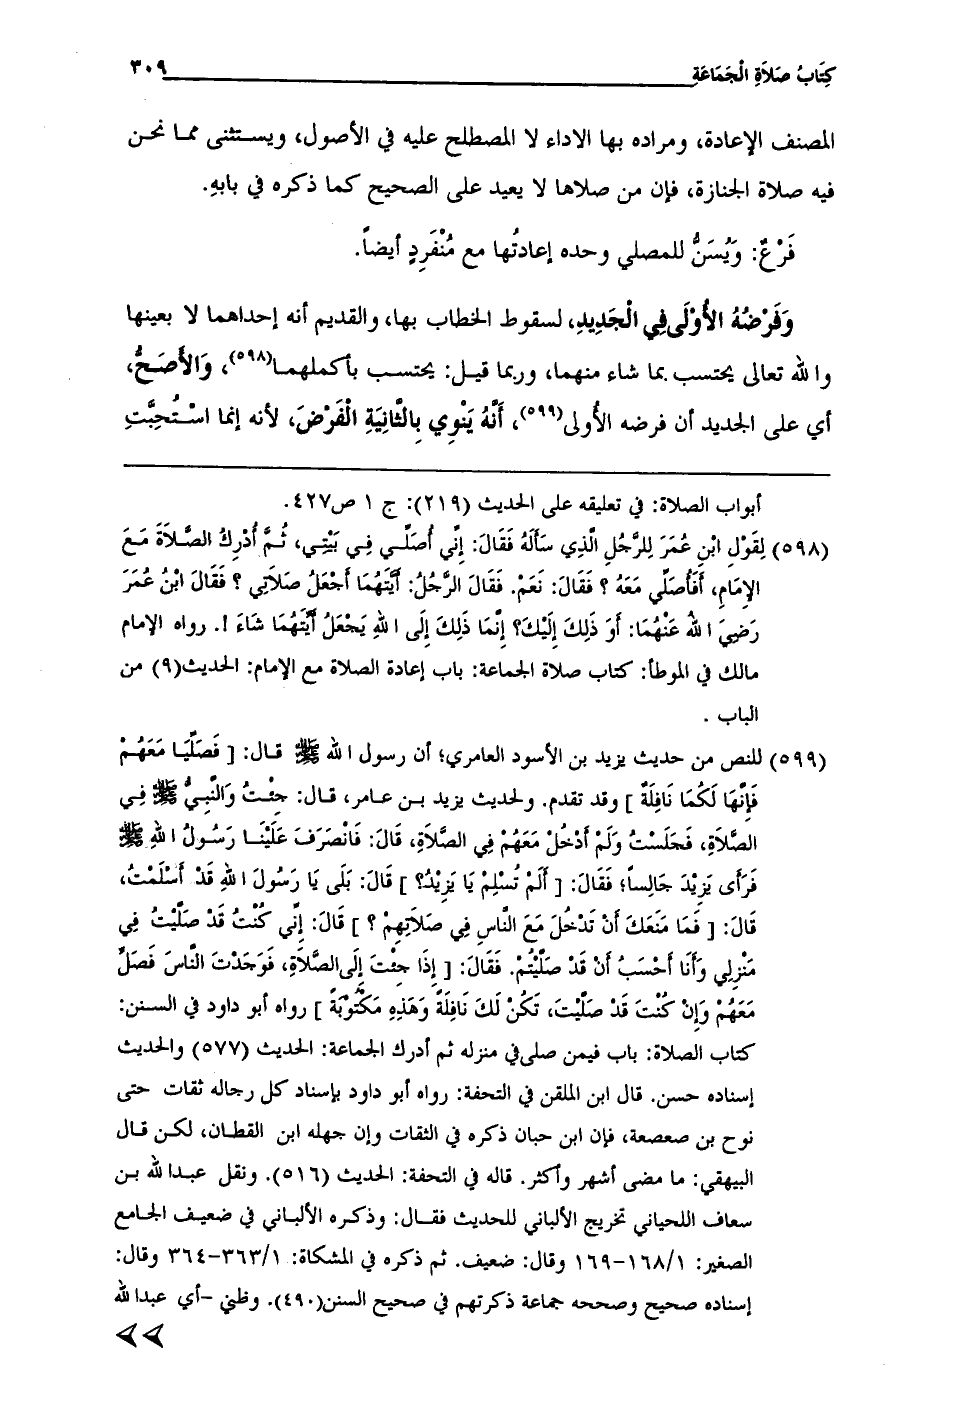 كِتَابُ صَلاَةِ الْجَمَاعَةِ ٣٠٩
المصنف الإعادة، ومراده بها الاداء لا المصطلح عليه في الأصول، ويستثنى مما نحن
فيه صلاة الجنازة، فإن من صلاها لا يعيد على الصحيح كما ذكره في بابهِ.
فَرْعٌ: وَيُسَنُّ للمصلي وحده إعادتُها مع مُنْفَرِدٍ أيضاً.
وَفَرْضُهُ الأُوْلَى فِي الْجَدِيدِ، لسقوط الخطاب بها، والقديم أنه إحداهما لا بعينها
والله تعالى يحتسب بما شاء منهما، وربما قيل: يحتسب بأكملهما(٥٩٨)، وَالأَصَحُّ،
أي على الجديد أن فرضه الأُولى(٥٩٩)، أَنَّهُ يَنْوِي بِالثَّانِيَةِ الْفَرْضَ، لأنه إنما اسْتُحِبَّتِ
أبواب الصلاة: في تعليقه على الحديث (٢١٩): ج ١ ص٤٢٧.
(٥٩٨) لِقَوْلِ ابْنِ عُمَرَ لِلرَّجُلِ الَّذِي سَأَلَهُ فَقَالَ: إِنِّي أُصَلِّي فِي بَيْتِي، ثُمَّ أُدْرِكُ الصَّلاَةَ مَعَ
الإِمَامِ، أَفَأُصَلِّي مَعَهُ ؟ فَقَالَ: نَعَمْ. فَقَالَ الرَّجُلُ: أَيَّتَهُمَا أَجْعَلُ صَلاَتِي ؟ فَقَالَ ابْنُ عُمَرَ
رَضِيَ اللهُ عَنْهُمَا: أَوَ ذَلِكَ إِلَيْكَ؟ إِنَّمَا ذَلِكَ إِلَى اللهِ يَجْعَلُ أَيَّتَهُمَا شَاءَ !. رواه الإمام
مالك في الموطأ: كتاب صلاة الجماعة: باب إعادة الصلاة مع الإمام: الحديث(٩) من
الباب .
(٥٩٩) للنص من حديث يزيد بن الأسود العامري؛ أن رسول الله ﷺ قال: [ فَصَلِّيَا مَعَهُمْ
فَإِنَّهَا لَكُمَا نَافِلَةٌ ] وقد تقدم. ولحديث يزيد بن عامر، قال: جِئْتُ وَالنَّبِيُّ ﷺ فِي
الصَّلاَةِ، فَجَلَسْتُ وَلَمْ أَدْخُلْ مَعَهُمْ فِي الصَّلاَةِ، قَالَ: فَانْصَرَفَ عَلَيْنَا رَسُولُ اللهِ ﷺ
فَرَأَى يَزِيْدَ جَالِساً؛ فَقَالَ: [ أَلَمْ تُسْلِمْ يَا يَزِيْدُ؟ ] قَالَ: بَلَى يَا رَسُولَ اللهِ قَدْ أَسْلَمْتُ،
قَالَ: [ فَمَا مَنَعَكَ أَنْ تَدْخُلَ مَعَ النَّاسِ فِي صَلاَتِهِمْ ؟ ] قَالَ: إِنِّي كُنْتُ قَدْ صَلَّيْتُ فِي
مَنْزِلِي وَأَنَا أَحْسَبُ أَنْ قَدْ صَلَّيْتُمْ. فَقَالَ: [ إِذَا جِئْتَ إِلَى الصَّلاَةِ، فَوَجَدْتَ النَّاسَ فَصَلِّ
مَعَهُمْ وَإِنْ كُنْتَ قَدْ صَلَّيْتَ، تَكُنْ لَكَ نَافِلَةً وَهَذِهِ مَكْتُوْبَةً ] رواه أبو داود في السنن:
كتاب الصلاة: باب فيمن صلى في منزله ثم أدرك الجماعة: الحديث (٥٧٧) والحديث
إسناده حسن. قال ابن الملقن في التحفة: رواه أبو داود بإسناد كل رجاله ثقات حتى
نوح بن صعصعة، فإن ابن حبان ذكره في الثقات وإن جهله ابن القطان، لكن قال
البيهقي: ما مضى أشهر وأكثر. قاله في التحفة: الحديث (٥١٦). ونقل عبدالله بن
سعاف اللحياني تخريج الألباني للحديث فقال: وذكره الألباني في ضعيف الجامع
الصغير: ١/ ١٦٨-١٦٩ وقال: ضعيف. ثم ذكره في المشكاة: ١/ ٣٦٣-٣٦٤ وقال:
إسناده صحيح وصححه جماعة ذكرتهم في صحيح السنن(٤٩٠). وظني -أي عبدالله